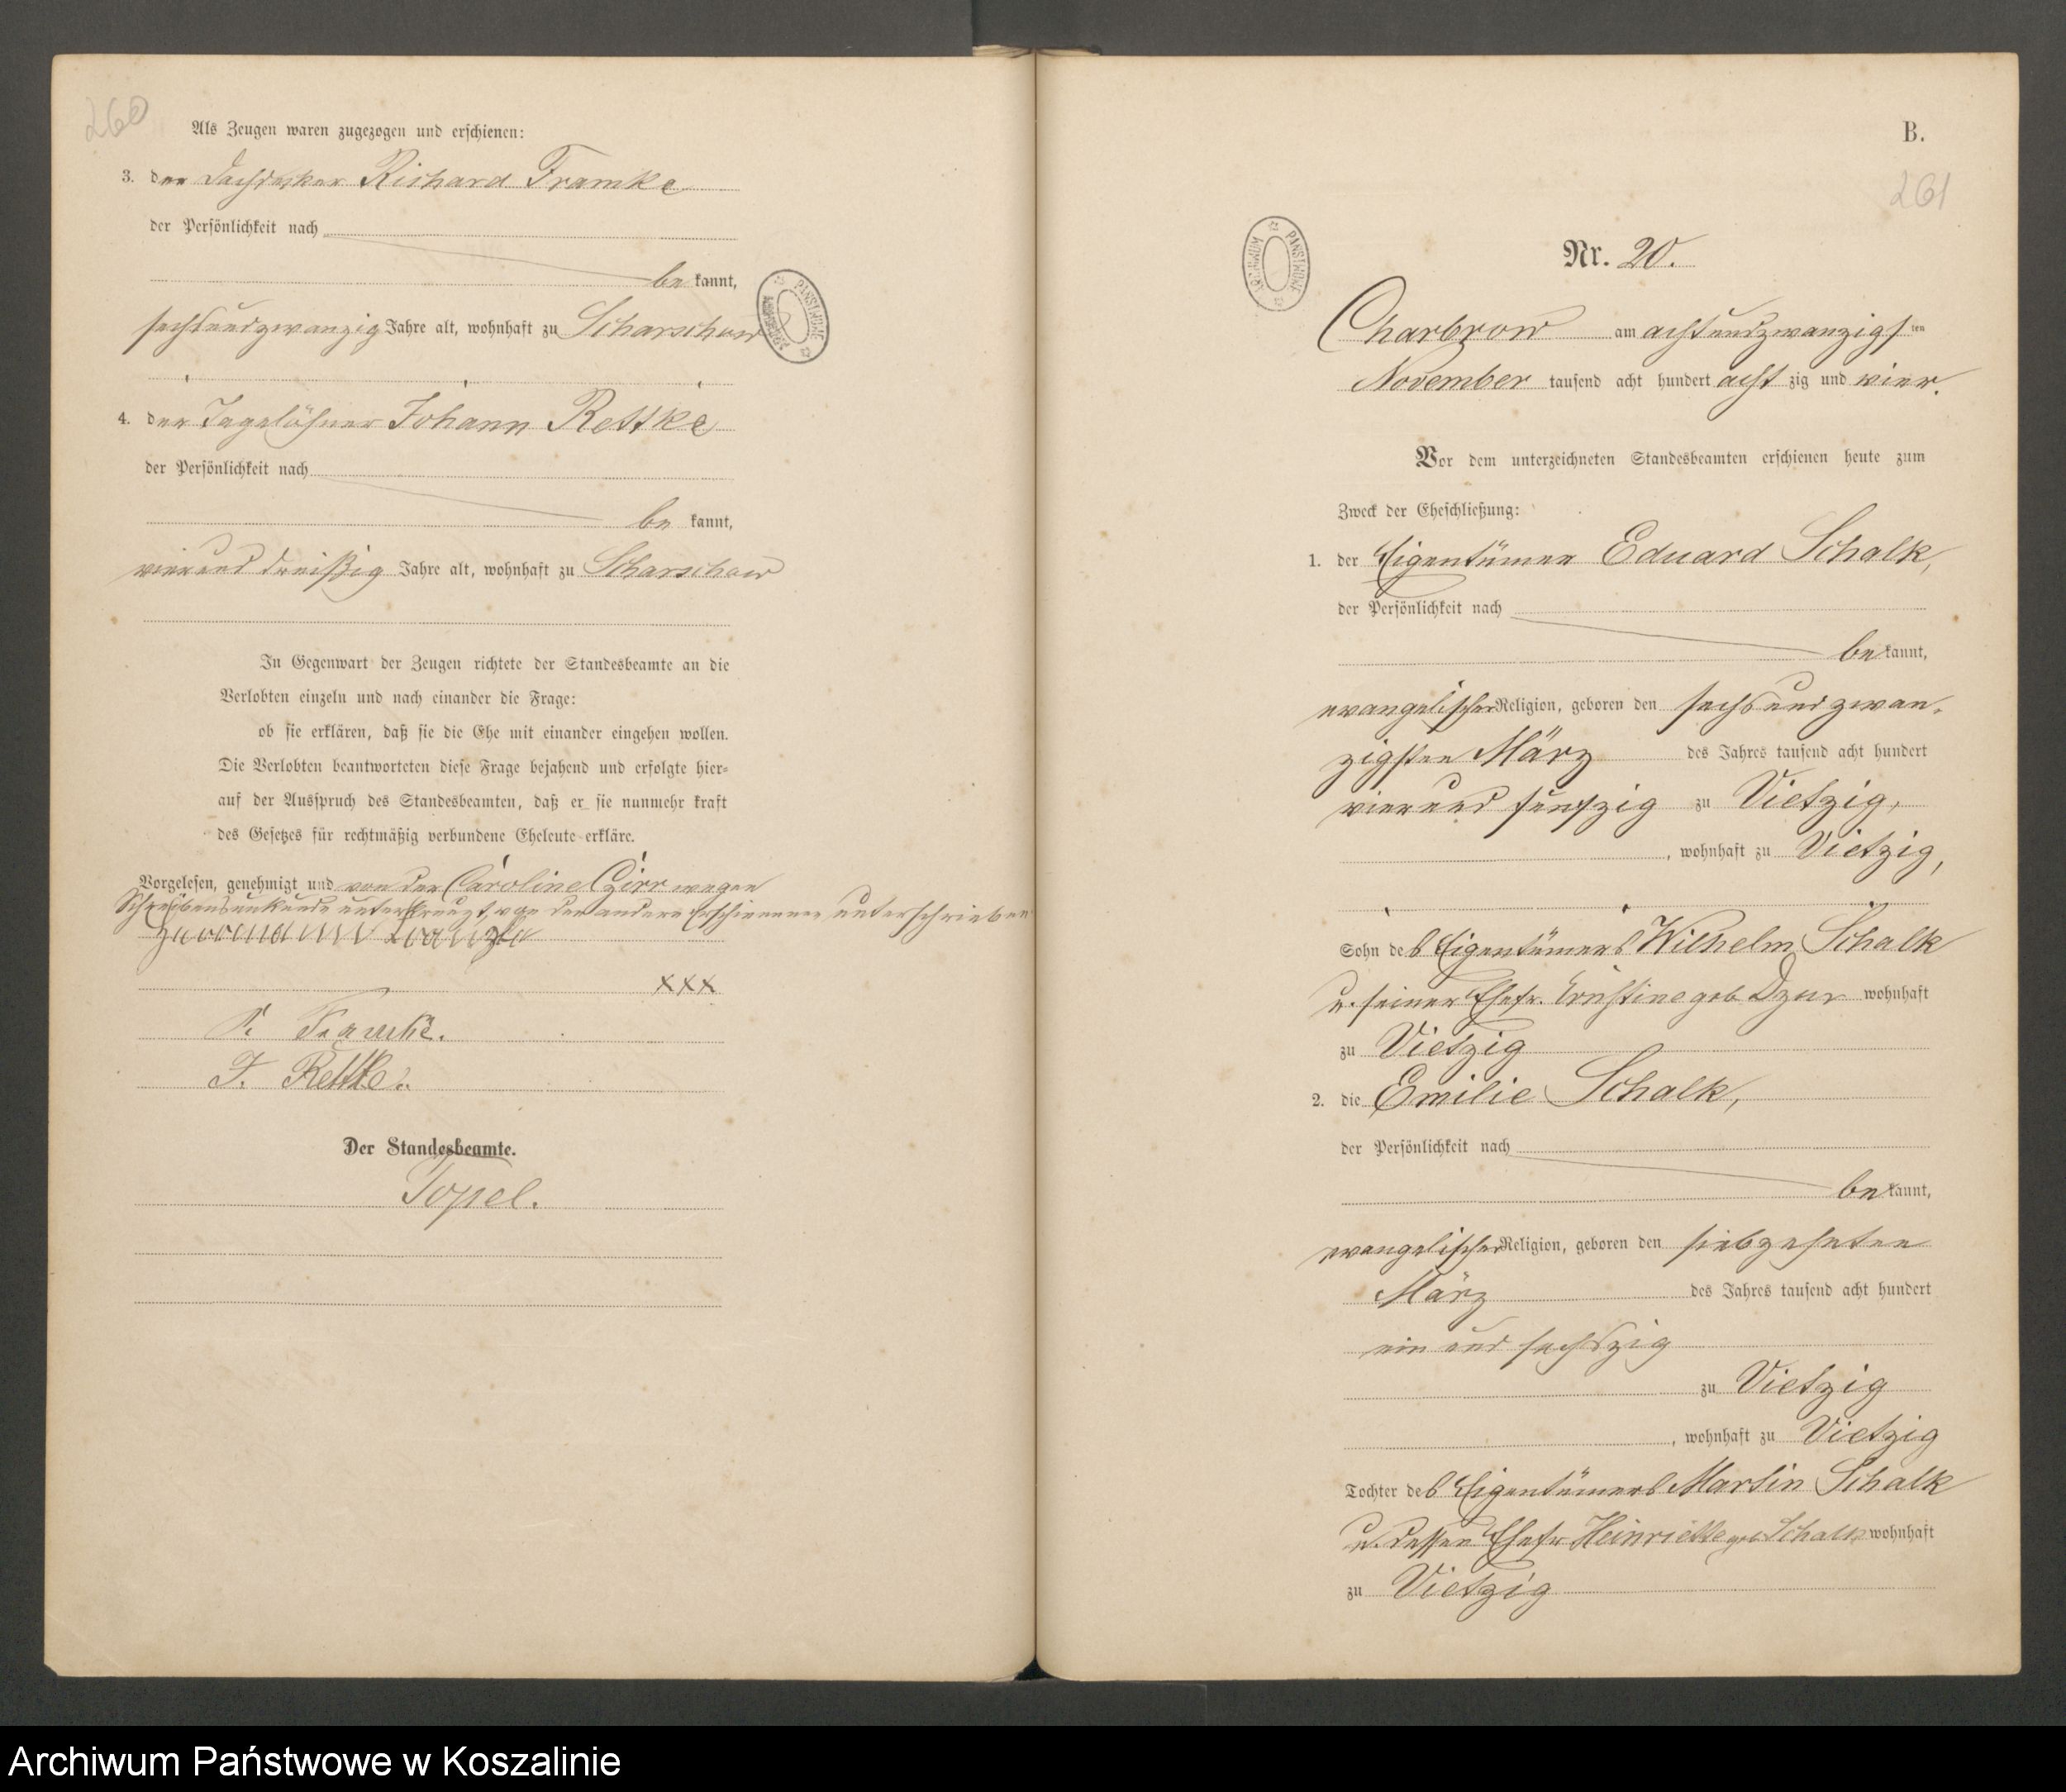 260
Als Zeugen waren zugezogen und erschienen:
3. der Dachdecker Richard Framke
der Persönlichkeit nach
be kannt,
sechsundzwanzig Jahre alt, wohnhaft zu Scharschow
4. der Tagelöhner Johann Rettke
der Persönlichkeit nach
be kannt,
vierund dreißig Jahre alt, wohnhaft zu Scharschow
In Gegenwart der Zeugen richtete der Standesbeamte an die
Verlobten einzeln und nach einander die Frage:
ob sie erklären, daß sie die Ehe mit einander eingehen wollen.
Die Verlobten beantworteten diese Frage bejahend und erfolgte hier-
auf der Ausspruch des Standesbeamten, daß er sie nunmehr kraft
des Gesetzes für rechtmäßig verbundene Eheleute erkläre.
Vorgelesen, genehmigt und von der Caroline Czirr wegen
Schreibensunkunde unterkreuzt, von den andern Erschienenen unterschrieben
xxx
R. Framke.
J. Rettke.
Der Standesbeamte.
Topel.
ARCHIWUM PAŃSTWOWE
B.
261
ARCHIWUM PAŃSTWOWE
Nr. 20.
Charbrow am achtundzwanzigsten
November tausend acht hundert acht zig und vier.
Vor dem unterzeichneten Standesbeamten erschienen heute zum
Zweck der Eheschließung:
1. der Eigentümer Eduard Schalk,
der Persönlichkeit nach
be kannt,
evangelischer Religion, geboren den sechsundzwan-
zigsten März des Jahres tausend acht hundert
vierund funfzig zu Vietzig,
, wohnhaft zu Vietzig,
Sohn des Eigentümers Wilhelm Schalk
u. seiner Ehefr. geb Dzur wohnhaft
zu Vietzig
2. die Emilie Schalk,
der Persönlichkeit nach
be kannt,
evangelischer Religion, geboren den siebzehnten
März des Jahres tausend acht hundert
ein und sechszig
zu Vietzig
, wohnhaft zu Vietzig
Tochter des Eigentümers Martin Schalk
u. dessen Ehefr Heinriette geb Schalk wohnhaft
zu Vietzig
Archiwum Państwowe w Koszalinie